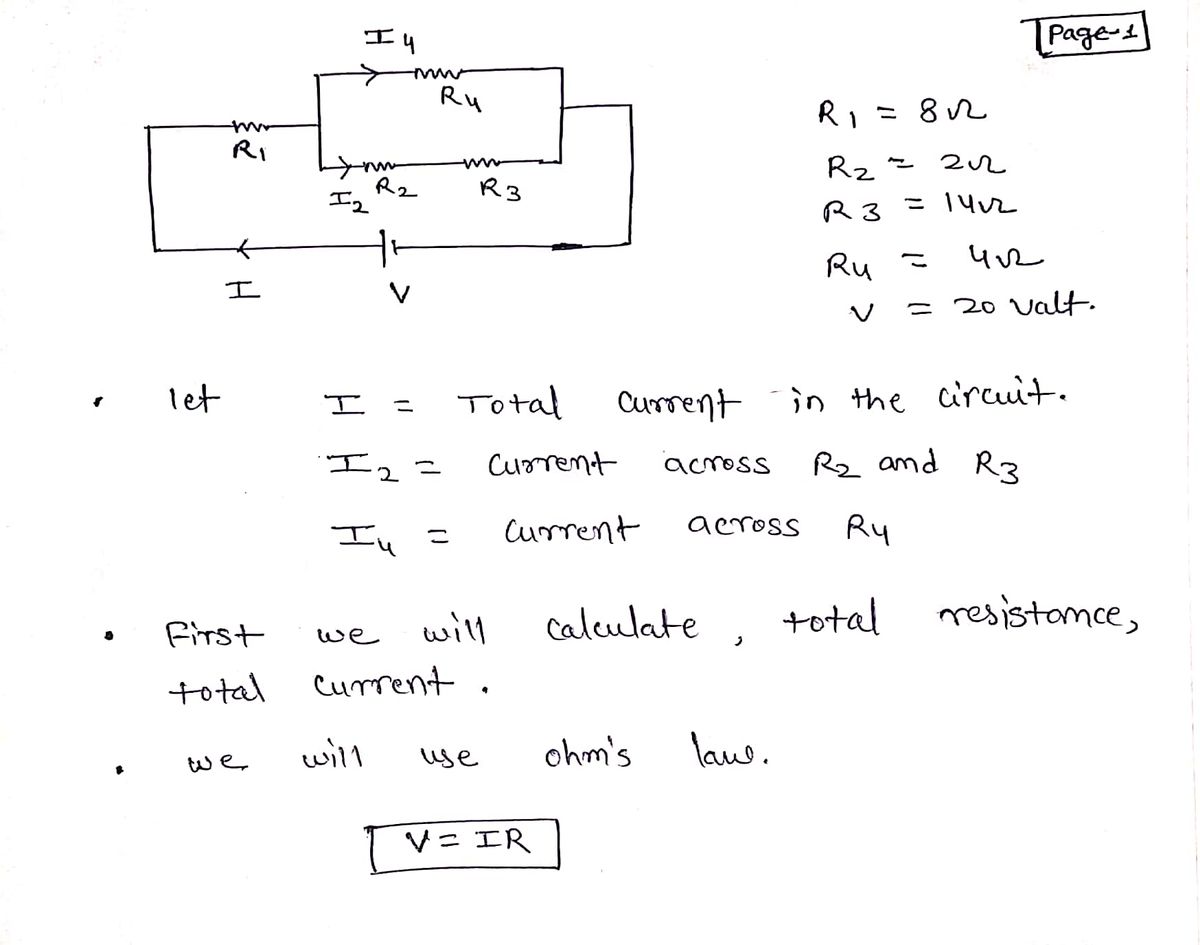 Page-1
I4
R4
R1
I2 R2 R3
I V
R1 = 8Ω
R2 = 2Ω
R3 = 14Ω
R4 = 4Ω
V = 20 valt.
• let I = Total current in the circuit.
I2 = current across R2 and R3
I4 = current across R4
• First we will calculate , total resistance,
total current .
• we will use ohm's law.
V = IR